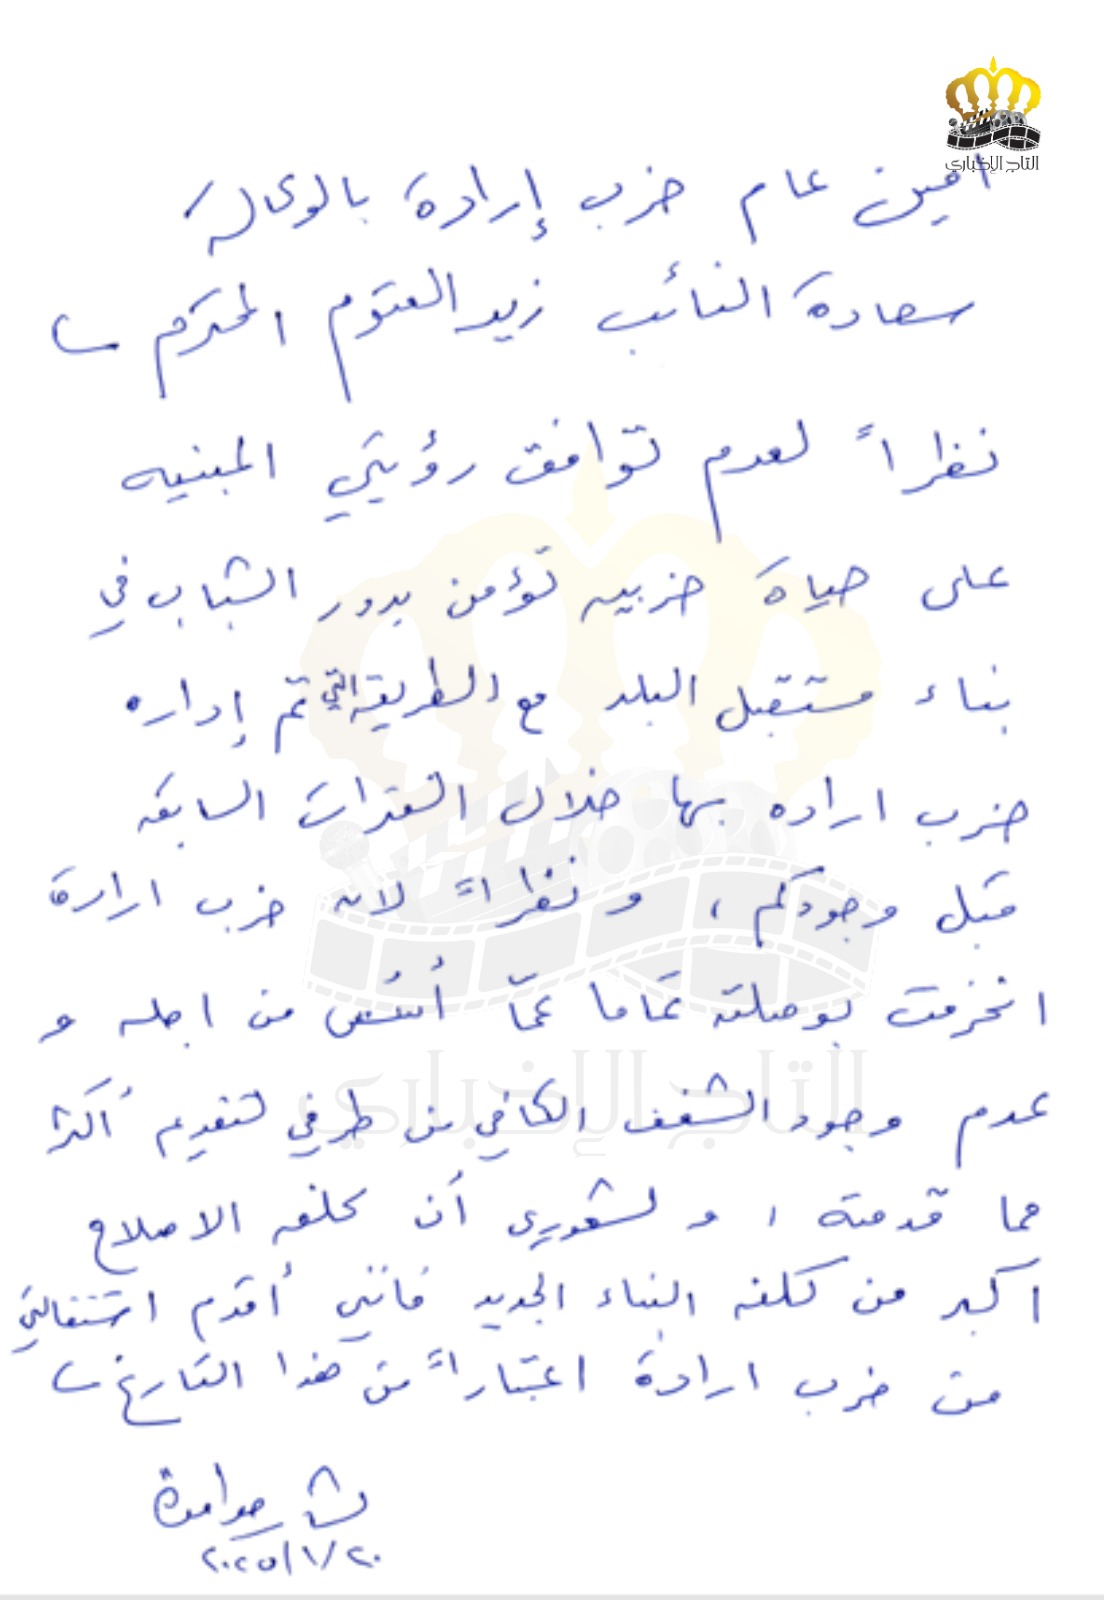 التاج الإخباري
امين عام حزب إرادة بالوكالة
سعادة النائب زيد العتوم المحترم
نظراً لعدم توافق رؤيتي المبنيه
على حياة حزبيه تؤمن بدور الشباب في
بناء مستقبل البلد مع الطريقه التي تم إداره
حزب اراده بها خلال الفترات السابقه
قبل وجودكم ، و نظراً لان حزب ارادة
انحرفت بوصلته تماما عمّا أُسّس من اجله و
عدم وجود الشغف الكافي من طرفي لتقديم أكثر
مما قدمته ، و لشعوري أن كلفه الاصلاح
اكبر من كلفه البناء الجديد فانني أقدم استقالتي
من حزب ارادة اعتباراً من هذا التاريخ
حوامدة
٢٠٢٥/١/٢٠
التاج الإخباري